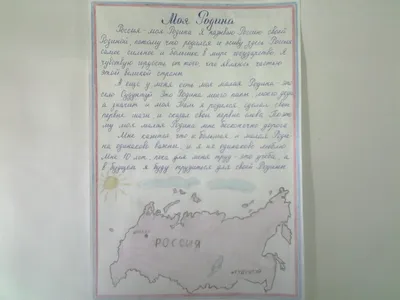 Моя Родина
Россия - моя Родина. Я называю Россию своей
Родиной, потому что родился и живу здесь. Россия
самое сильное и большое в мире государство. Я
чувствую гордость от того, что являюсь частью
этой великой страны.
А ещё у меня есть моя малая Родина - это
село Это Родина моего папы, моего деда
а значит и моя. Там я родился, сделал свои
первые шаги и сказал свои первые слова. Поэто
му моя малая Родина мне бесконечно дорога.
Мне кажется, что и большая и малая Роди
на одинаково важны, и я их одинаково люблю.
Мне 10 лет, пока для меня труд - это учёба, а
в будущем я буду трудиться для своей Родины.
РОССИЯ